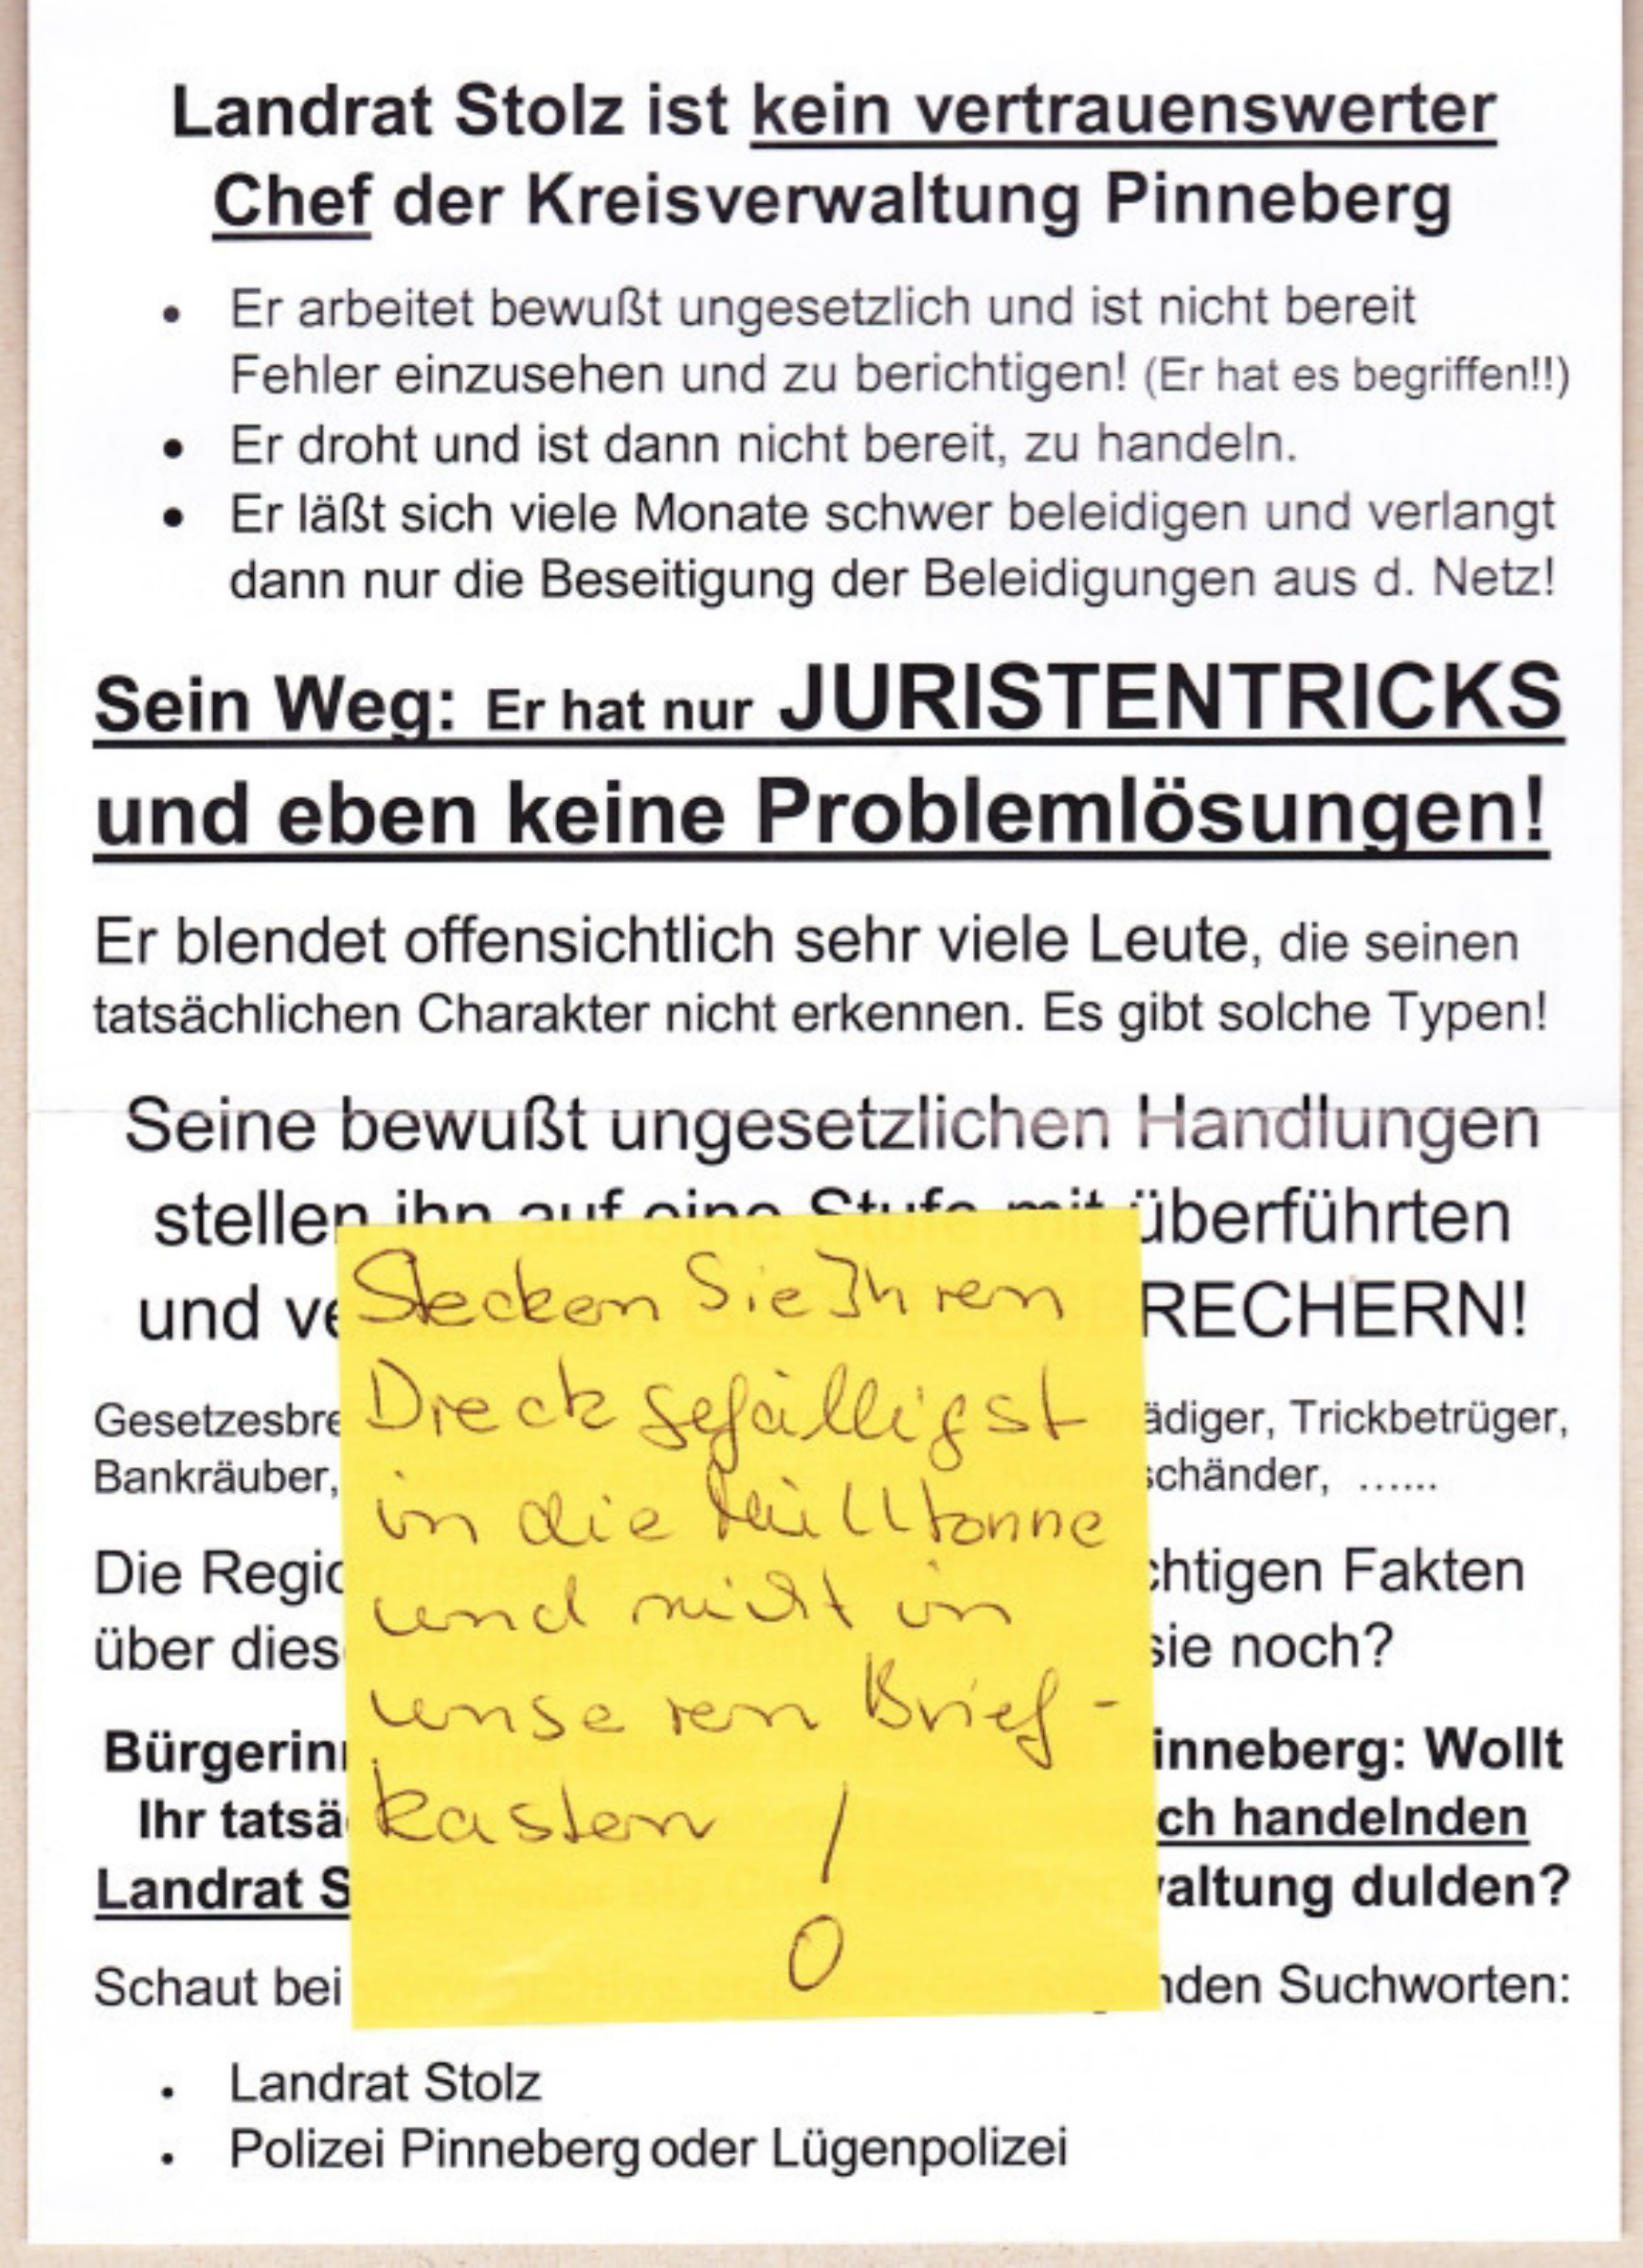 Landrat Stolz ist kein vertrauenswerter
Chef der Kreisverwaltung Pinneberg
• Er arbeitet bewußt ungesetzlich und ist nicht bereit
Fehler einzusehen und zu berichtigen! (Er hat es begriffen!!)
• Er droht und ist dann nicht bereit, zu handeln.
• Er läßt sich viele Monate schwer beleidigen und verlangt
dann nur die Beseitigung der Beleidigungen aus d. Netz!
Sein Weg: Er hat nur JURISTENTRICKS
und eben keine Problemlösungen!
Er blendet offensichtlich sehr viele Leute, die seinen
tatsächlichen Charakter nicht erkennen. Es gibt solche Typen!
Seine bewußt ungesetzlichen Handlungen
stellen ihn auf eine Stufe mit überführten
und ve RECHERN!
Gesetzesbre ädiger, Trickbetrüger,
Bankräuber, schänder, ......
Die Regio chtigen Fakten
über dies sie noch?
Bürgerinn inneberg: Wollt
Ihr tatsä ch handelnden
Landrat S altung dulden?
Schaut bei nden Suchworten:
• Landrat Stolz
• Polizei Pinneberg oder Lügenpolizei
Stecken Sie Ihren
Dreck gefälligst
in die Mülltonne
und nicht in
unseren Brief-
kasten !